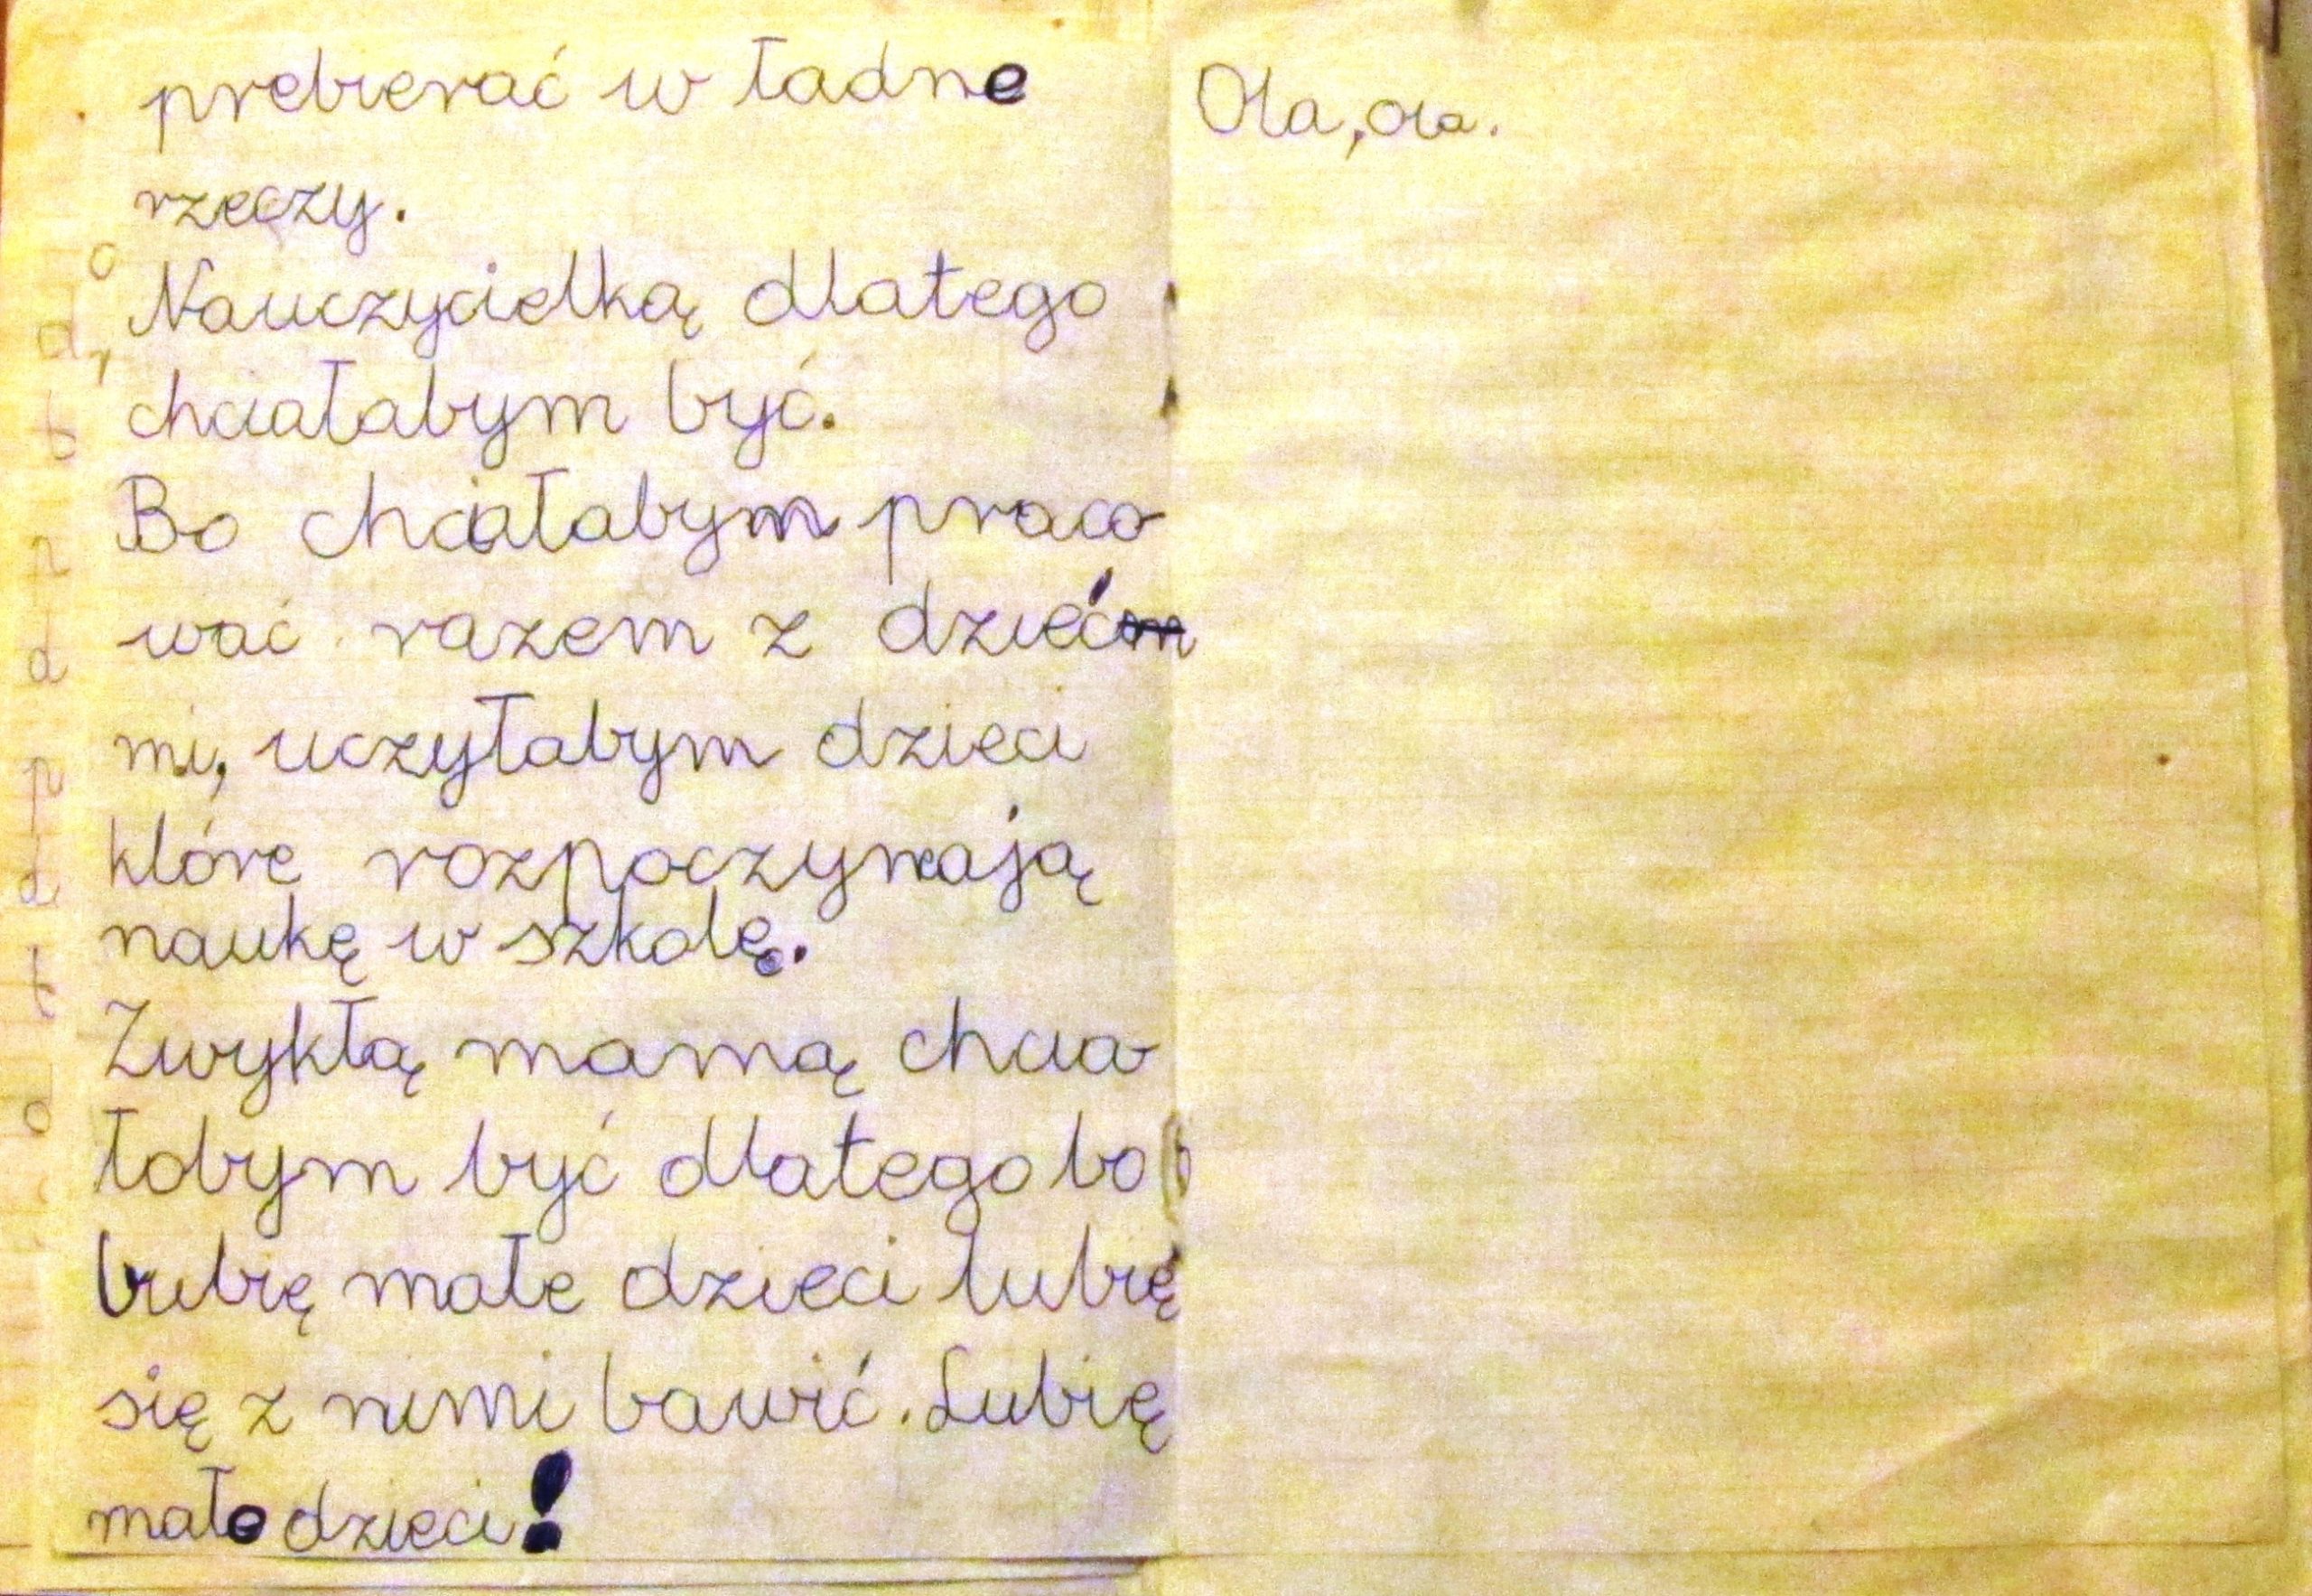 prebierać w ładne
rzeczy.
Nauczycielką dlatego
chciałabym być.
Bo chciałabym praco
wać razem z dzieć
mi, uczyłabym dzieci
które rozpoczynają
naukę w szkolę.
Zwykłą mamą chcia
łobym być dlatego bo
lubię małe dzieci lubię
się z nimi bawić. Lubię
małe dzieci!
Ola, Ola.